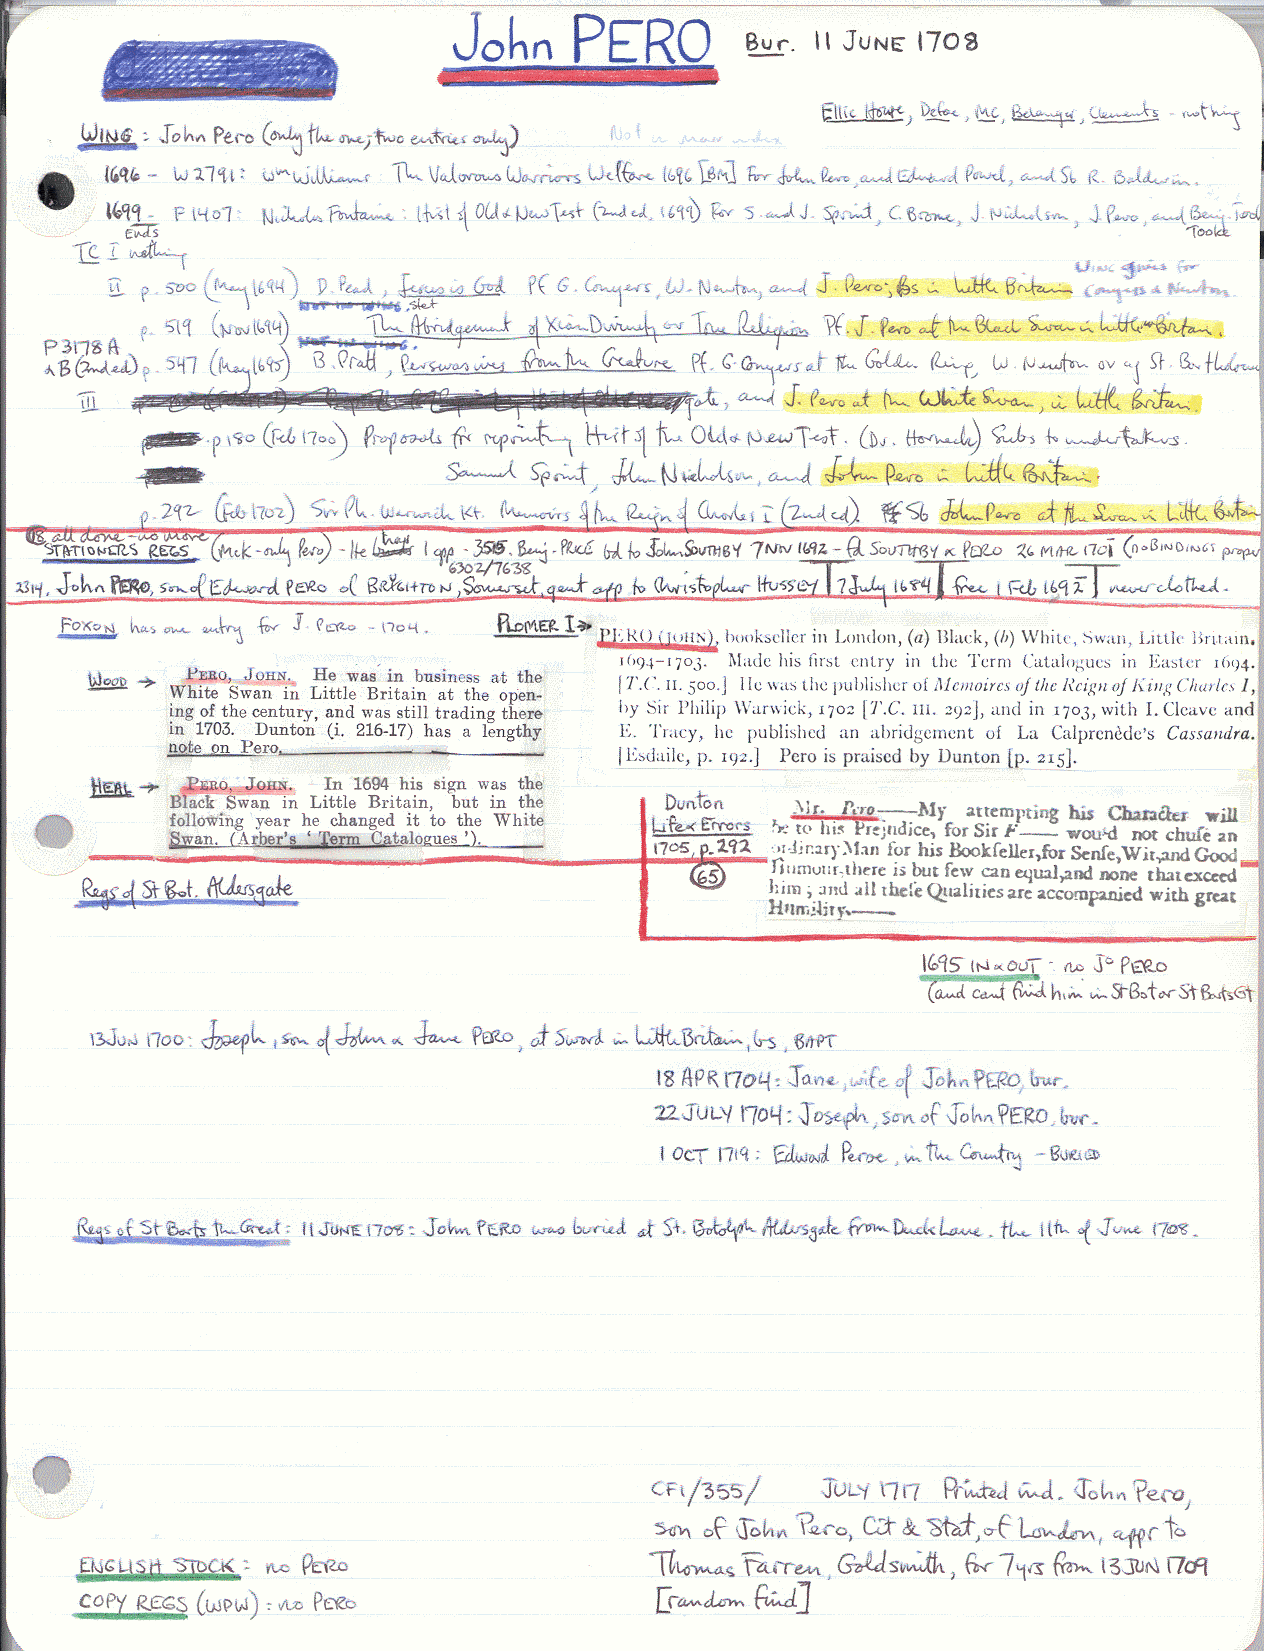 John PERO Bur. 11 JUNE 1708
Ellic Howe, Defoe, MC, Belanger, Clements - nothing
WING: John Pero (only the one; two entries only) Not in Morr index
1696 - W2791: Wm Williams: The Valorous Warriors Welfare 1696 [BM] For John Pero, and Edward Powel, and Sb R. Baldwin.
1699 - F1407: Nicholas Fontaine: Hist of Old & New Test (2nd ed, 1699) For S. and J. Sprint, C. Brome, J. Nicholson, J. Pero, and Benj. Took
Ends Tooke
TC I nothing
Wing gives for
II p. 500 (May 1694) D. Pead, Jesus is God Pf G. Conyers, W. Newton, and J. Pero; Bs in Little Britain Conyers & Newton.
stet
p. 519 (Nov 1694) The Abridgement of Xian Divinity or True Religion Pf. J. Pero at the Black Swan in Little Britain.
P3178A
& B (2nd ed) p. 547 (May 1695) B. Pratt, Perswasives from the Creature Pf. G. Conyers at the Golden Ring, W. Newton ov ag St. Bartholomew
III gate, and J. Pero at the White Swan, in Little Britain.
p 180 (Feb 1700) Proposals for reprinting Hist of the Old & New Test. (Dr. Horneck) Subs to undertakers.
Samuel Sprint, John Nicholson, and John Pero in Little Britain.
p. 292 (Feb 1702) Sir Ph. Warwick Kt. Memoirs of the Reign of Charles I (2nd ed). Sb John Pero at the Swan in Little Britain
all done - no more
STATIONERS REGS (McK - only Pero) - He had 1 app - 3515. Benj. PRICE bd to John SOUTHBY 7 NOV 1692 - fd SOUTHBY & PERO 26 MAR 1701 (no BINDINGS proper
6302/7638
2314. John PERO, son of Edward PERO of BRIGHTON, Somerset, gent app to Christopher HUSSEY 7 July 1684 free 1 Feb 1692 never clothed.
FOXON has one entry for J. PERO - 1704.
PLOMER I
PERO (JOHN), bookseller in London, (a) Black, (b) White, Swan, Little Britain,
1694-1703. Made his first entry in the Term Catalogues in Easter 1694.
[T.C. II. 500.] He was the publisher of Memoires of the Reign of King Charles I,
by Sir Philip Warwick, 1702 [T.C. III. 292], and in 1703, with I. Cleave and
E. Tracy, he published an abridgement of La Calprenède's Cassandra.
[Esdaile, p. 192.] Pero is praised by Dunton [p. 215].
WOOD →
PERO, JOHN. He was in business at the
White Swan in Little Britain at the open-
ing of the century, and was still trading there
in 1703. Dunton (i. 216-17) has a lengthy
note on Pero.
HEAL →
PERO, JOHN. In 1694 his sign was the
Black Swan in Little Britain, but in the
following year he changed it to the White
Swan. (Arber's ' Term Catalogues '.)
Dunton
Life & Errors
1705, p. 292
65
Mr. Pero——My attempting his Character will
be to his Prejudice, for Sir F—— wou'd not chuse an
ordinary Man for his Bookseller, for Sense, Wit, and Good
Humour, there is but few can equal, and none that exceed
him; and all these Qualities are accompanied with great
Humility.——
Regs of St Bot. Aldersgate
1695 IN & OUT - no Jo PERO
(and cant find him in St Bot or St Barts Gt
13 JUN 1700: Joseph, son of John & Jane PERO, at Sword in Little Britain, bs, BAPT
18 APR 1704: Jane, wife of John PERO, bur.
22 JULY 1704: Joseph, son of John PERO, bur.
1 OCT 1719: Edward Peroe, in the Country - BURIED
Regs of St Barts the Great: 11 JUNE 1708: John PERO was buried at St. Botolph Aldersgate from Duck Lane. the 11th of June 1708.
CF1/355/ JULY 1717 Printed ind. John Pero,
son of John Pero, Cit & Stat, of London, appr to
Thomas Farren, Goldsmith, for 7 yrs from 13 JUN 1709
[random find]
ENGLISH STOCK: no PERO
COPY REGS (WPW): no PERO